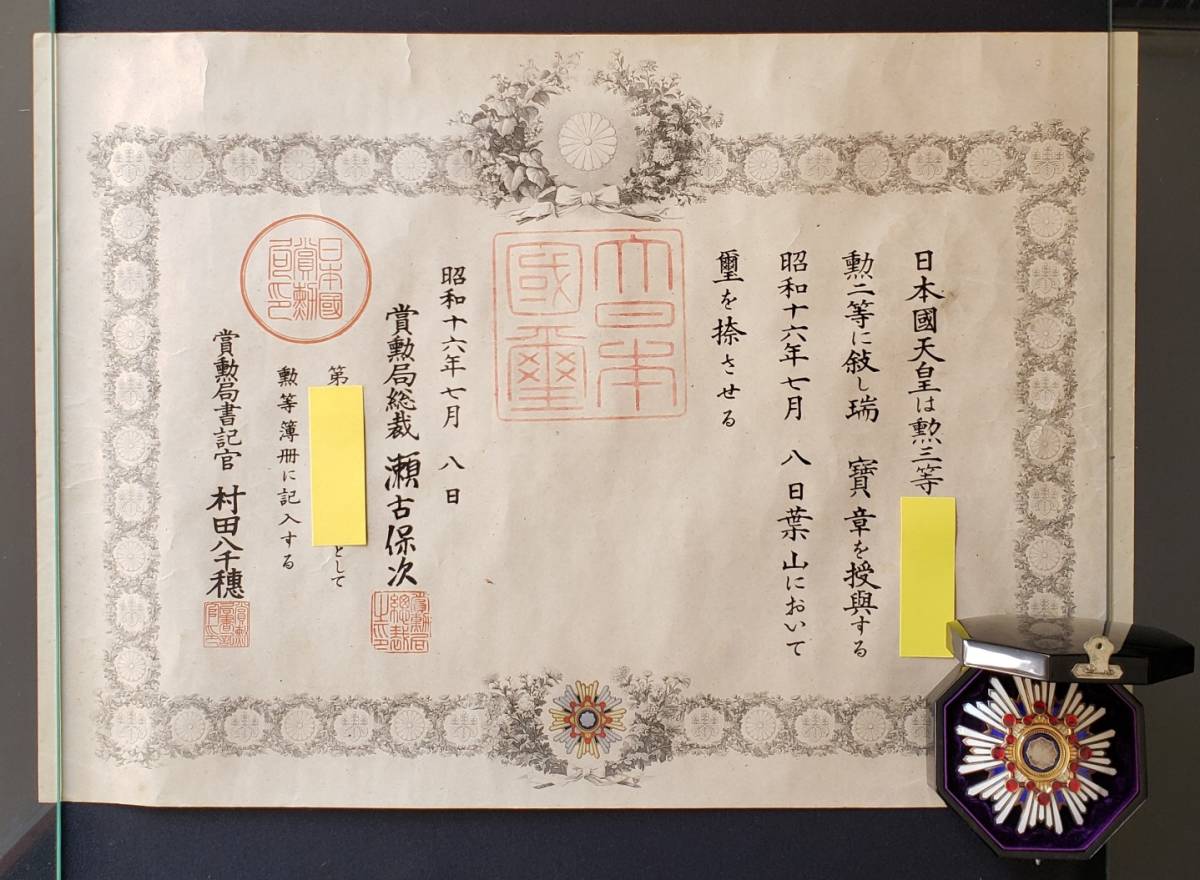 日本國天皇は勲三等
勲二等に敍し瑞 寶章を授與する
昭和十六年七月 八日葉山において
璽を捺させる
大日本
國璽
昭和十六年七月 八日
賞勲局総裁 瀬古保次
賞勲局
総裁
之印
第
として
勲等簿册に記入する
賞勲局書記官 村田八千穗
日本國
賞勲
局印